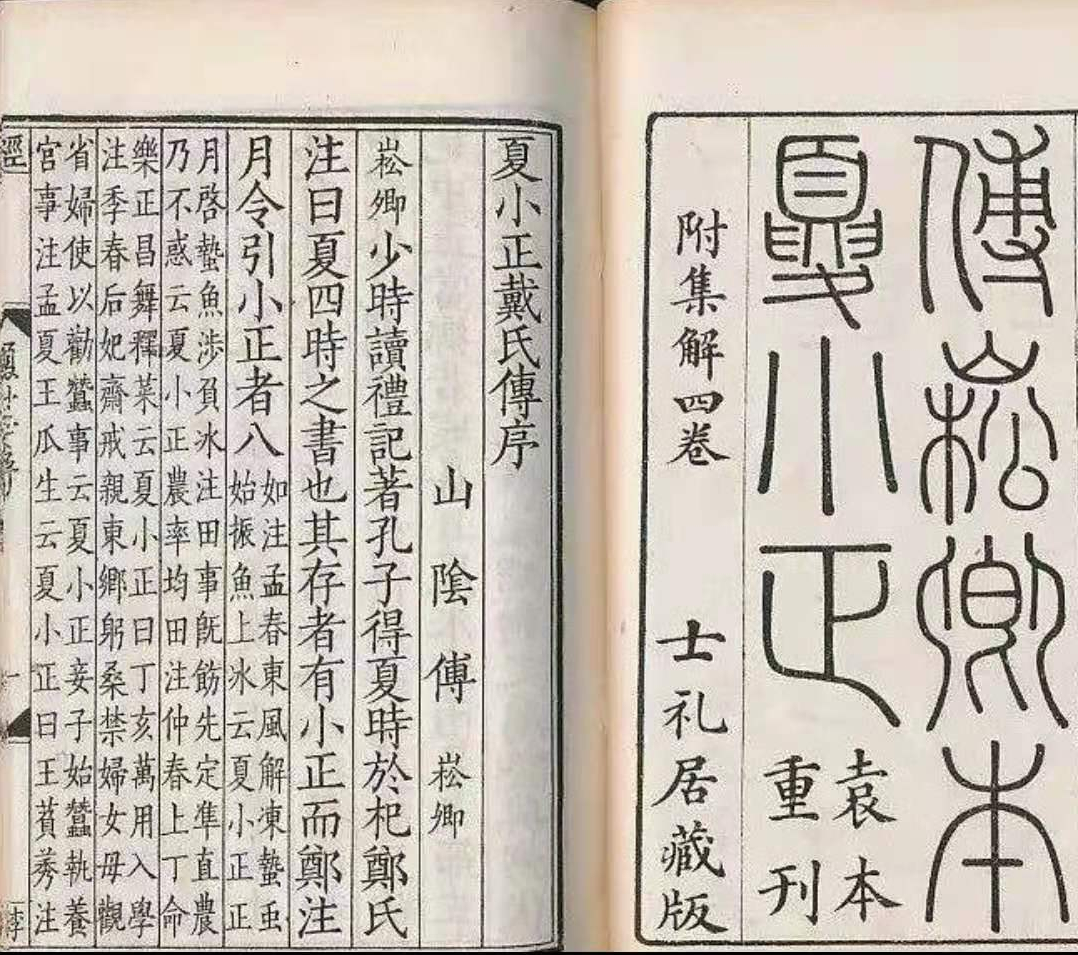 傅崧卿本
夏小正
袁本
重刊
附集解四卷
士礼居藏版
夏小正戴氏傳序
山陰傅崧卿
崧卿少時讀禮記著孔子得夏時於杞鄭氏
注曰夏四時之書也其存者有小正而鄭注
月令引小正者八
如注孟春東風解凍蟄虫
始振魚上冰云夏小正正
月啓蟄魚涉負冰注田事旣飭先定準直農
乃不惑云夏小正農率均田注仲春上丁命
樂正昌舞釋菜云夏小正曰丁亥萬用入學
注季春后妃齋戒親東鄉躬桑禁婦女毋觀
省婦使以勸蠶事云夏小正妾子始蠶執養
宮事注孟夏王瓜生云夏小正曰王萯莠注
經
一
李